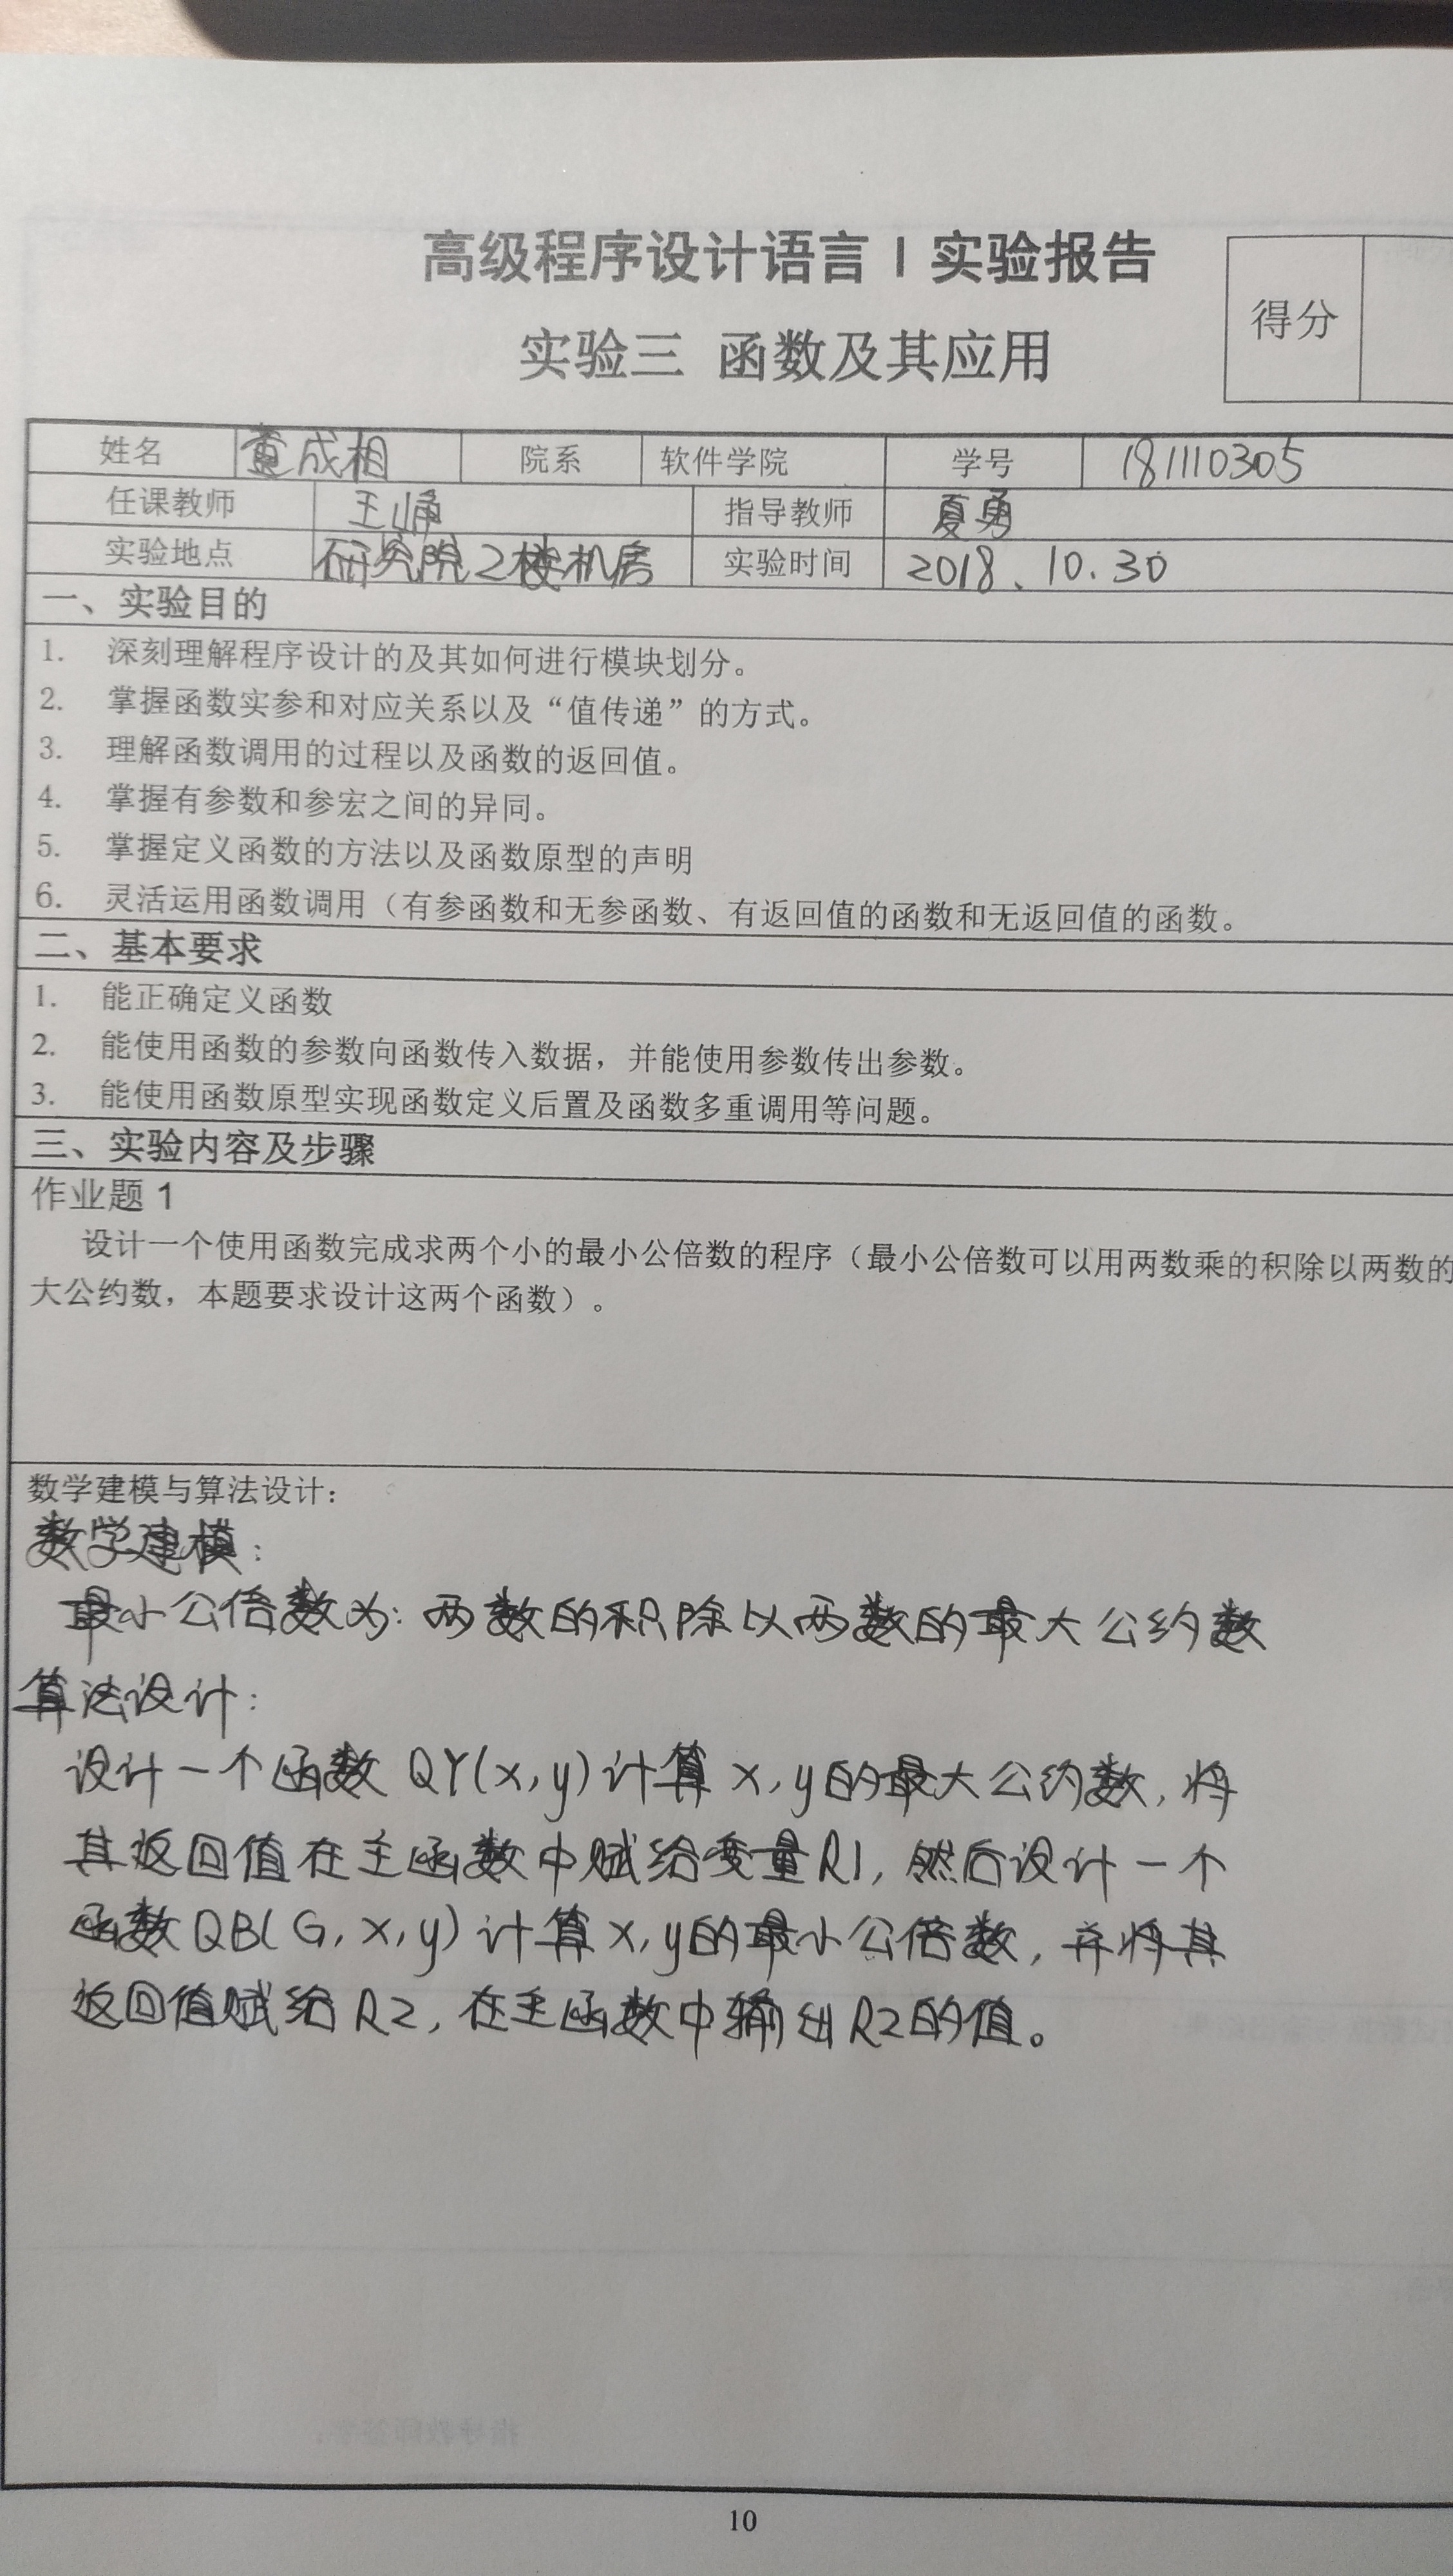 高级程序设计语言 I 实验报告
得分
实验三 函数及其应用
姓名 董成相 院系 软件学院 学号 181110305
任课教师 王峥 指导教师 夏勇
实验地点 研究院2楼机房 实验时间 2018.10.30
一、实验目的
1. 深刻理解程序设计的及其如何进行模块划分。
2. 掌握函数实参和对应关系以及“值传递”的方式。
3. 理解函数调用的过程以及函数的返回值。
4. 掌握有参数和参宏之间的异同。
5. 掌握定义函数的方法以及函数原型的声明
6. 灵活运用函数调用（有参函数和无参函数、有返回值的函数和无返回值的函数。
二、基本要求
1. 能正确定义函数
2. 能使用函数的参数向函数传入数据，并能使用参数传出参数。
3. 能使用函数原型实现函数定义后置及函数多重调用等问题。
三、实验内容及步骤
作业题 1
设计一个使用函数完成求两个小的最小公倍数的程序（最小公倍数可以用两数乘的积除以两数的
大公约数，本题要求设计这两个函数）。
数学建模与算法设计：
数学建模：
最小公倍数为：两数的积除以两数的最大公约数
算法设计：
设计一个函数 QY(x,y)计算 x,y的最大公约数，将
其返回值在主函数中赋给变量R1，然后设计一个
函数QB(G,x,y)计算x,y的最小公倍数，并将其
返回值赋给R2，在主函数中输出R2的值。
10